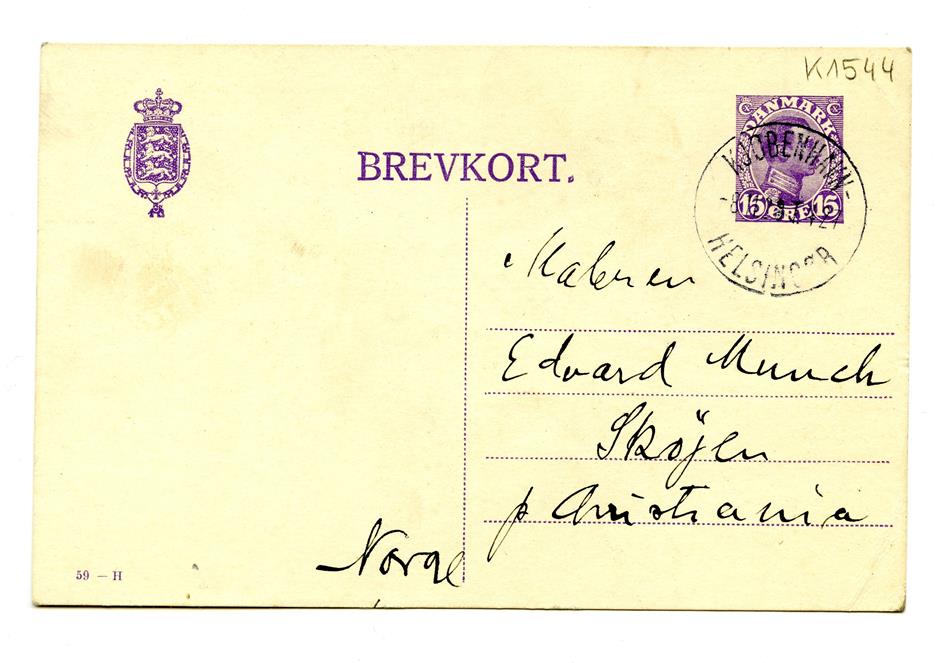 K1544
DANMARK
BREVKORT.
KJØBENHAVN-
15 ØRE 15
HELSINGØR
Maleren
Edvard Munch
Sköjen
p Christiania
Norge
59 – H